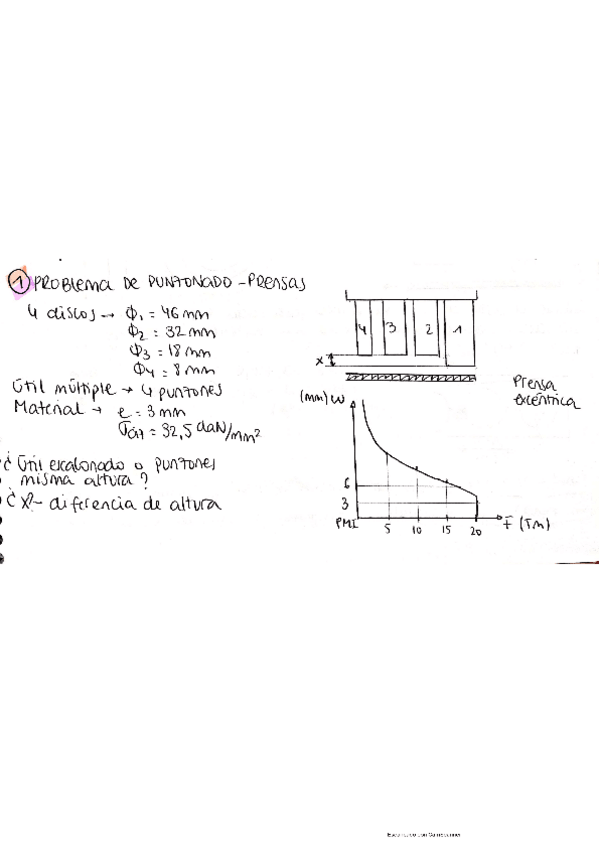 ① PROBLEMA DE PUNZONADO - PRENSAS
4 discos → Φ₁ = 46 mm
Φ₂ = 32 mm
Φ₃ = 18 mm
Φ₄ = 8 mm
Útil múltiple → 4 punzones
Material → e = 3 mm
= 32,5 daN/mm²
¿Útil escalonado o punzones
misma altura?
¿X? - diferencia de altura
4 3 2 1
x
Prensa
excéntrica
(mm) ω
6
3
PMI 5 10 15 20 F (Tm)
Escaneado con CamScanner